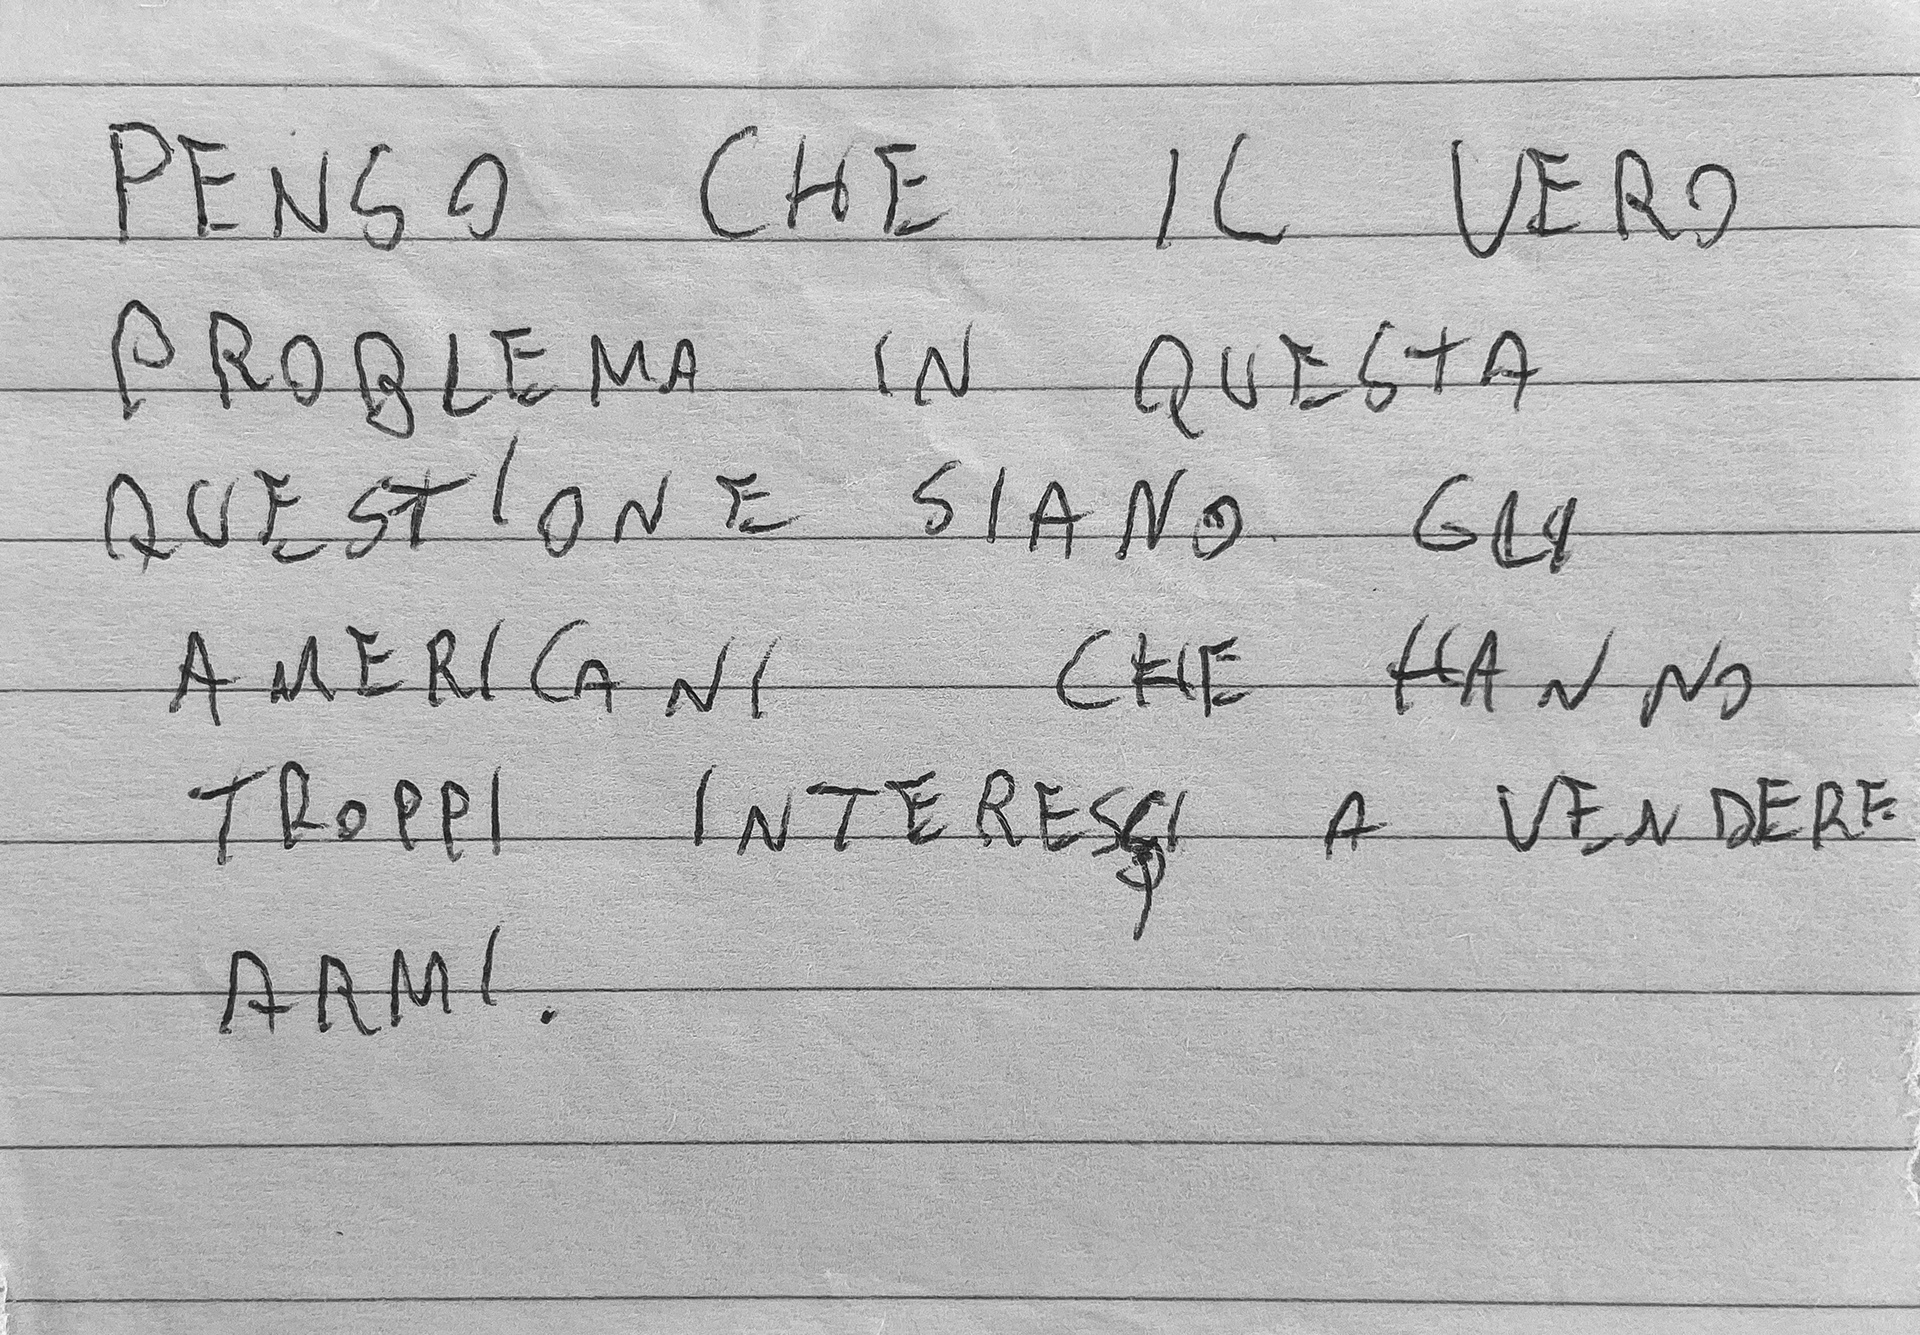 PENSO CHE IL VERO
PROBLEMA IN QUESTA
QUESTIONE SIANO GLI
AMERICANI CHE HANNO
TROPPI INTERESSI A VENDERE
ARMI.